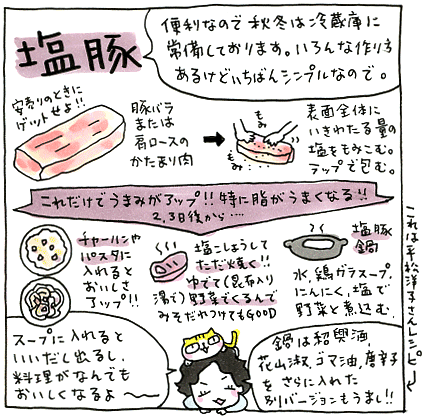 塩豚
便利なので秋冬は冷蔵庫に
常備しております。いろんな作り方
あるけどいちばんシンプルなので。
安売りのときに
ゲットせよ!!
豚バラ
または
肩ロースの
かたまり肉
もみ
もみ
表面全体に
いきわたる量の
塩をもみこむ。
ラップで包む。
これだけでうまみがアップ!!特に脂がうまくなる!!
2、3日後から‥‥
チャーハンや
パスタに
入れると
おいしさ
アップ!!
塩こしょうして
ただ焼く!!
ゆでて(昆布入り
湯で)野菜でくるんで
みそだれつけてもGOOD
塩豚
鍋
水、鶏ガラスープ、
にんにく、塩で
野菜と煮込む。
これは平松洋子さんレシピ
スープに入れると
いいだし出るし、
料理がなんでも
おいしくなるよ〜
鍋は紹興酒、
花山淑、ゴマ油、唐辛子
をさらに入れた
別バージョンもうまし!!